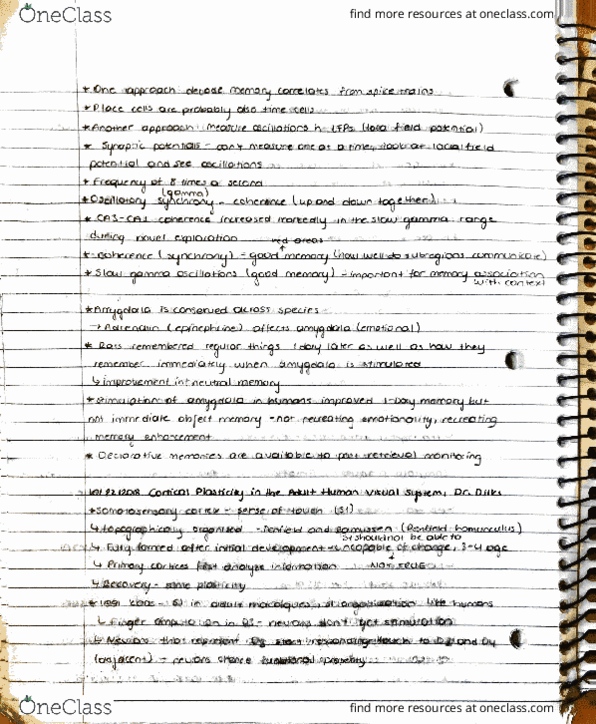 OneClass
find more resources at oneclass.com
* One approach decode memory correlates from spike trains
* Place cells are probably also time cells
* Another approach: measure oscillations in LFPs (local field potential)
* Synaptic potentials - can't measure one at a time, look at local field
potential and see oscillations
* Frequency of 8 times a second
(gamma)
* Oscillatory synchrony - coherence (up and down together)
* CA3-CA1 coherence increased markedly in the slow gamma range
during novel exploration red areas
* Coherence (synchrony) - good memory (how well do subregions communicate)
* Slow gamma oscillations (good memory) - important for memory association
with context
* Amygdala is conserved across species
→ Adrenalin (epinephrine) affects amygdala (emotional)
* Rats remembered regular things 1 day later as well as how they
remember immediately when amygdala is stimulated
↳ improvement in neutral memory
* Stimulation of amygdala in humans improved 1-day memory but
not immediate object memory - not recreating emotionality, recreating
memory enhancement
* Declarative memories are available to post retrieval monitoring
Cortical Plasticity in the Adult Human Visual System, Dr. Dilks
* Somatosensory cortex - sense of touch (S1)
↳ topographically organised - Penfield and Rasmussen (Penfield homunculus)
should not be able to
↳ Fully formed after initial development - uncapable of change, 3-4 age
↳ Primary cortices first analyse information
↳ Recovery - some plasticity
* 1991 - S1 in adult macaques, organization like humans
↳ Finger amputation in - neurons don't get stimulation
↳ Neurons that represent start responding touch to and
(adjacent) - neurons change property
OneClass
find more resources at oneclass.com